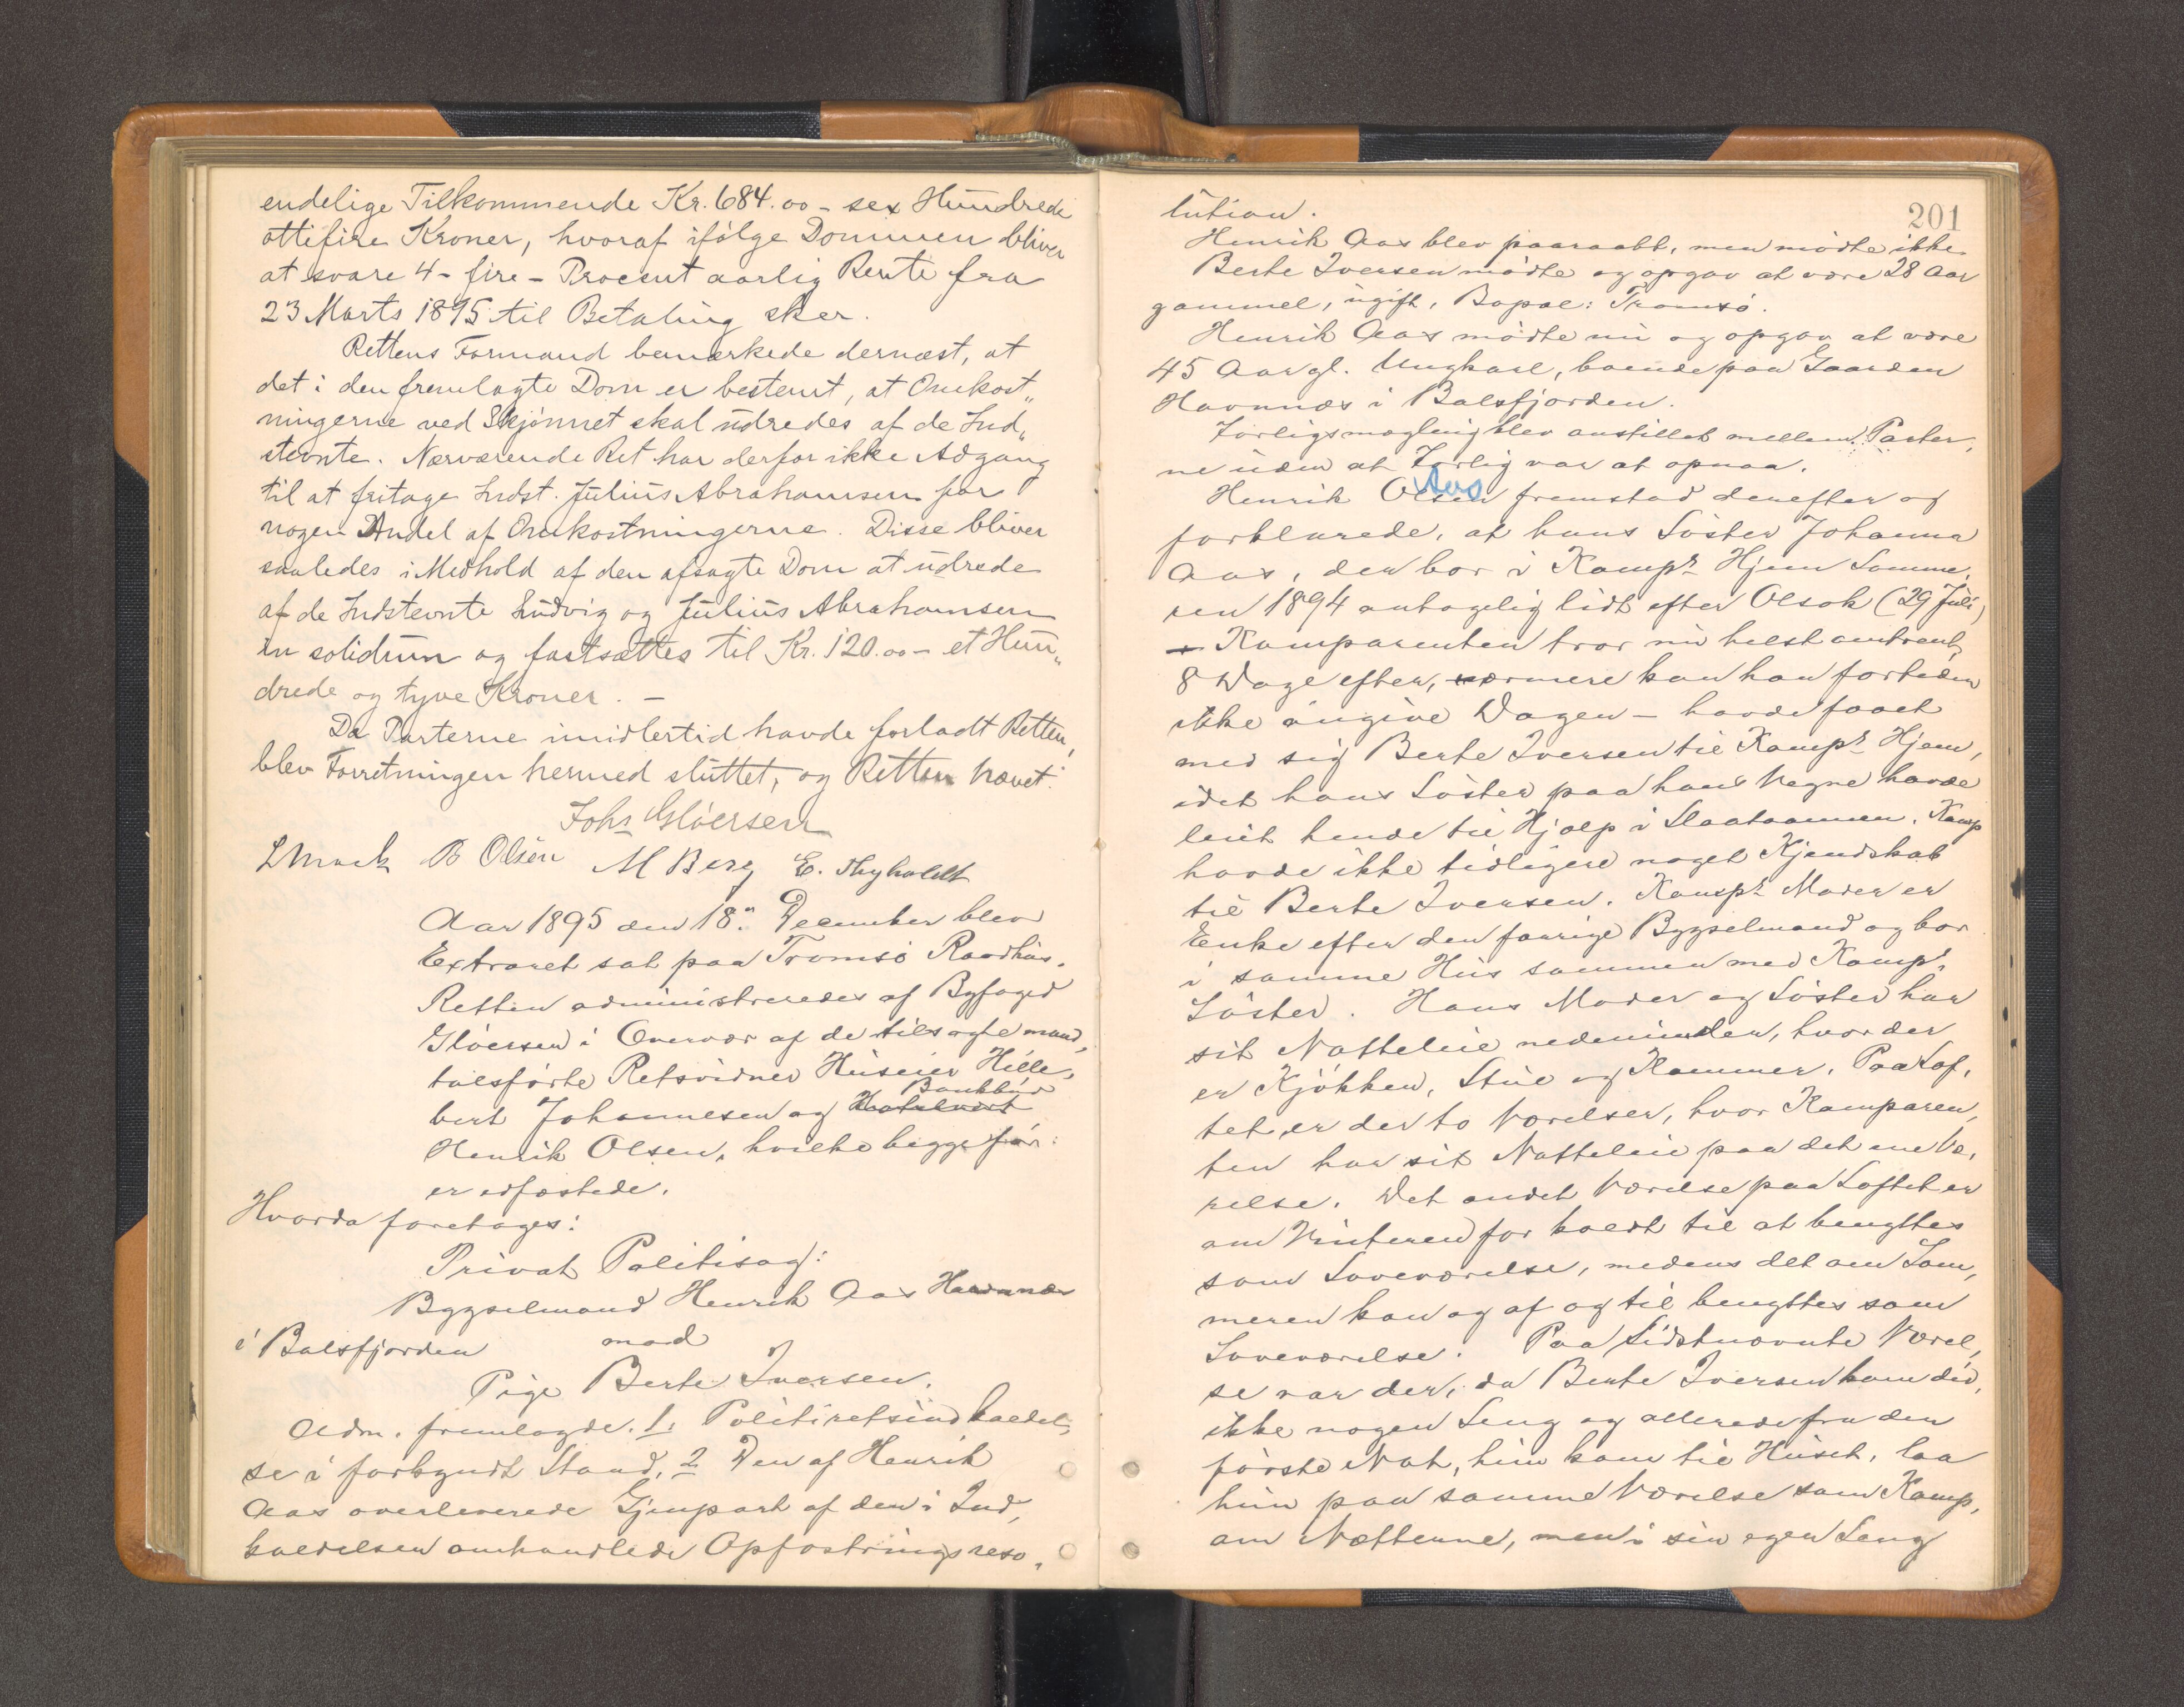 endelige Tilkommende Kr. 684.00 - sex Hundrede
ottifire Kroner, hvoraf ifølge Dommen bliver
at svare 4 - fire - Procent aarlig Rente fra
23 Marts 1895 til Betaling sker.
Rettens Formand bemærkede dernæst, at
det i den fremlagte Dom er bestemt, at Omkost„
ningerne ved Skjønnet skal udredes af de Ind„
stevnte. Nærværende Ret har derfor ikke Adgang
til at fritage Indst. Julius Abrahamsen for
nogen Andel af Omkostningerne. Disse bliver
saaledes i Medhold af den afsagte Dom at udrede
af de Indstevnte Ludvig og Julius Abrahamsen
in solidum og fastsættes til Kr. 120.00 - et Hun„
drede og tyve Kroner. -
Da Parterne imidlertid havde forladt Retten,
blev Forretningen hermed sluttet, og Retten hævet.
Johs Gløersen
L Mack B Olsen M Berg E.
Aar 1895 den 18. December blev
Extraret sat paa Tromsø Raadhus.
Retten administreredes af Byfoged
Gløersen i Overvær af de tilsagte mand,
talsførte Retsvidner Huseier Hille,
bert Johannesen og Bankbud
Henrik Olsen, hvilke begge før
er edfæstede.
Hvorda foretoges:
Privat Politisag:
Bygselmand Henrik Aas Havnnæs
i Balsfjorden mod
Pige Berte Iversen.
Adm. fremlagde. 1. Politiretsindkaldel,
se i forkyndt Stand, 2 Den af Henrik
Aas overleverede Gjenpart af den i Ind,
kaldelsen omhandlede Opfostringsreso,
201
lution.
Henrik Aas blev paaraabt, men mødte ikke
Berte Iversen mødte og opgav at være 28 Aar
gammel, ugift, Bopæl: Tromsø.
Henrik Aas mødte nu og opgav at være
45 Aar gl. Ungkarl, boende paa Gaarden
Havnnæs i Balsfjorden.
Forligsmægling blev anstillet mellem Parter,
ne uden at Forlig var at opnaa.
Henrik Olsen Aas fremstod derefter og
forklarede, at hans Søster Johanna
Aas, der bor i Kompts Hjem Somme,
ren 1894 antagelig lidt efter Olsok (29 Juli)
- Komparenten tror nu helst omtrent
8 Dage efter, nærmere kan han fortiden
ikke angive Dagen - havde faaet
med sig Berte Iversen til Kompts Hjem,
idet hans Søster paa hans Vegne havde
leiet hende til Hjælp i Slaataannen. Komp
havde ikke tidligere noget Kjendskab
til Berte Iversen. Kompts Moder er
Enke efter den forrige Bygselmand og bor
i samme Hus sammen med Kompts
Søster. Hans Moder og Søster har
sit Natteleie nedenunder, hvor der
er Kjøkken, Stue og Kammer. Paa Lof,
tet er der to Værelser, hvor Komparen,
ten har sit Natteleie paa det ene Væ,
relse. Det andet Værelse paa Loftet er
om Vinteren for koldt til at benyttes
som Soveværelse, medens det om Som,
meren kan og af og til benyttes som
Soveværelse. Paa sidstnævnte Værel,
se var der, da Berte Iversen kom did,
ikke nogen Seng og allerede fra den
første Nat, hun kom til Huset, laa
hun paa samme Værelse som Komp,
om Nætterne, men i sin egen Seng